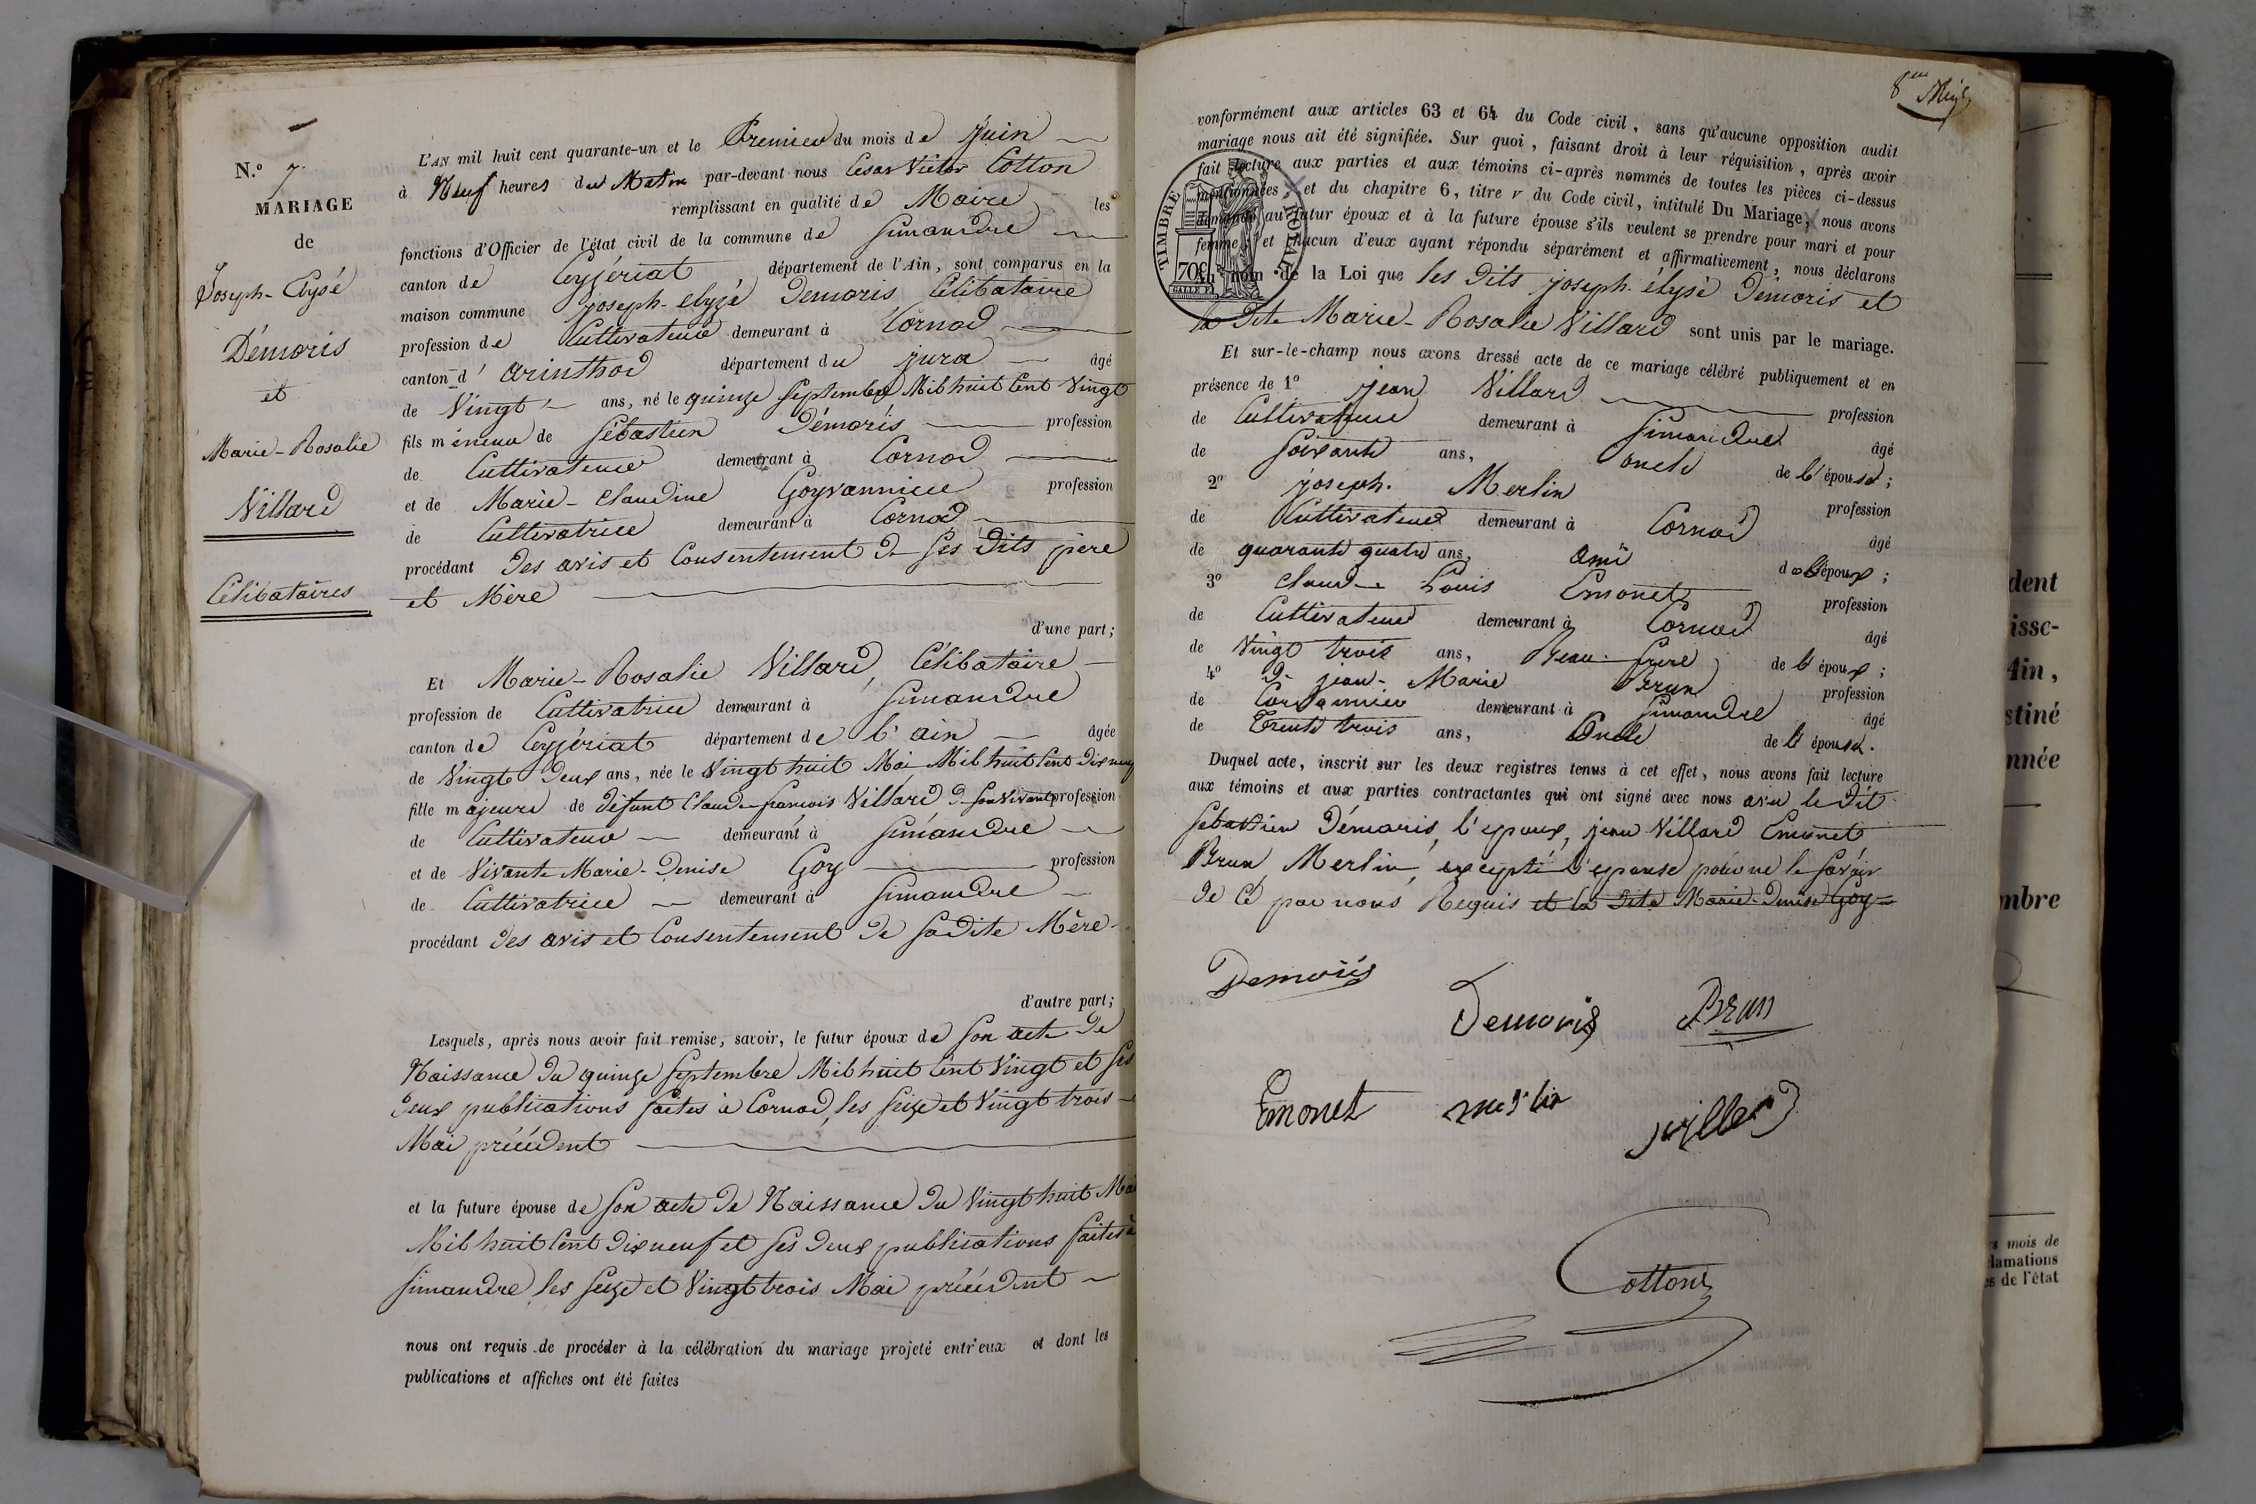 N.º 7
MARIAGE
de
Joseph-Elysé
Démoris
et
Marie-Rosalie
Villard
Célibataires
L'AN mil huit cent quarante-un et le Premier du mois de Juin
à Neuf heures du Matin par-devant nous Cesar Victor Cotton
remplissant en qualité de Maire les
fonctions d'Officier de l'état civil de la commune de Simandre
canton de Ceyzériat département de l'Ain, sont comparus en la
maison commune joseph-elyzé Démoris Célibataire
profession de Cultivateur demeurant à Cornod
canton d' arinthod département du jura âgé
de Vingt ans, né le quinze Septembre Mil huit Cent Vingt
fils mineur de Sébastien Démoris profession
de Cultivateur demeurant à Cornod
et de Marie-Claudine Goyvannier profession
de Cultivatrice demeurant à Cornod
procédant des avis et Consentement de Ses dits père
et Mère
d'une part;
Et Marie-Rosalie Villard, Célibataire
profession de Cultivatrice demeurant à Simandre
canton de Ceyzériat département de l'ain âgée
de Vingt Deux ans, née le Vingt huit Mai Mil huit Cent Dix neuf
fille majeure de défunt Claude-françois Villard de Son Vivant profession
de Cultivateur demeurant à Simandre
et de Vivante Marie-Denise Goy profession
de Cultivatrice demeurant à Simandre
procédant des avis et Consentement de Sadite Mère
d'autre part;
Lesquels, après nous avoir fait remise, savoir, le futur époux de Son acte de
Naissance du quinze Septembre Mil huit Cent Vingt et Ses
Deux publications faites à Cornod, les Seize et Vingt trois
Mai précédent
et la future épouse de Son acte de Naissance du Vingt huit Mai
Mil huit Cent Dix neuf et Ses Deux publications faites à
Simandre les Seize et Vingt trois Mai précédent
nous ont requis de procéder à la célébration du mariage projeté entr'eux et dont les
publications et affiches ont été faites
8
conformément aux articles 63 et 64 du Code civil, sans qu'aucune opposition audit
mariage nous ait été signifiée. Sur quoi, faisant droit à leur réquisition, après avoir
fait lecture aux parties et aux témoins ci-après nommés de toutes les pièces ci-dessus
mentionnées, et du chapitre 6, titre v du Code civil, intitulé Du Mariage, nous avons
demandé au futur époux et à la future épouse s'ils veulent se prendre pour mari et pour
femme; et chacun d'eux ayant répondu séparément et affirmativement, nous déclarons
au nom de la Loi que les dits joseph-élysé Démoris et
la dite Marie-Rosalie Villard sont unis par le mariage.
TIMBRE ROYAL
70c
Et sur-le-champ nous avons dressé acte de ce mariage célébré publiquement et en
présence de 1º jean Villard profession
de Cultivateur demeurant à Simandre âgé
de Soixante ans, oncle de l'épouse;
2º joseph. Merlin profession
de Cultivateur demeurant à Cornod âgé
de quarante quatre ans, ami de l'époux;
3º Claude-Louis Emonet profession
de Cultivateur demeurant à Cornod âgé
de Vingt trois ans, Beau-frere de l'époux;
4º jean-Marie Brun profession
de Cordonnier demeurant à Simandre âgé
de Trente trois ans, Oncle de l'épouse.
Duquel acte, inscrit sur les deux registres tenus à cet effet, nous avons fait lecture
aux témoins et aux parties contractantes qui ont signé avec nous avec le dit
Sebastien Démoris, l'epoux, jean Villard Emonet
Brun, Merlin, excepté l'epouse pour ne le Savoir
de ce par nous Requis et la dite Marie-Denise Goy
Demoris
Demoris Brun
Emonet merlin
villard
Cotton
dent
Ain,
stiné
nnée
mbre
mois de
clamations
es de l'état